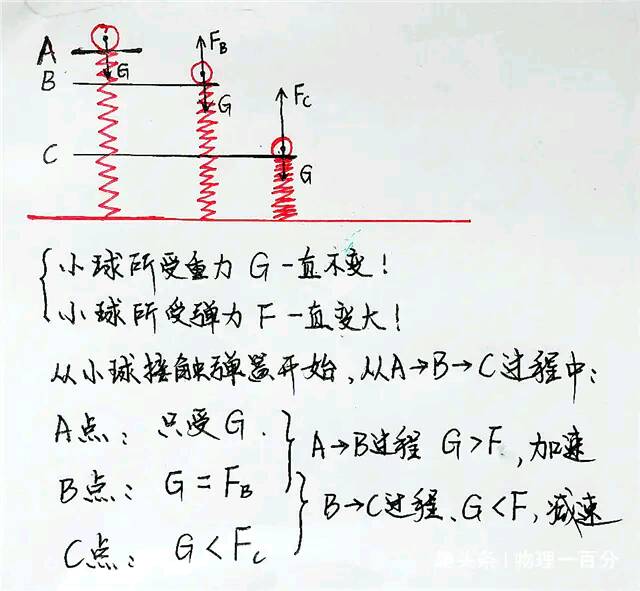 A
G
B
F_B
G
C
F_C
G
小球所受重力 G 一直不变！
小球所受弹力 F 一直变大！
从小球接触弹簧开始，从A→B→C过程中：
A点：只受G.
A→B过程 G>F，加速
B点：G=F_B
B→C过程、G<F，减速
C点：G<F_C
头条 | 物理一百分